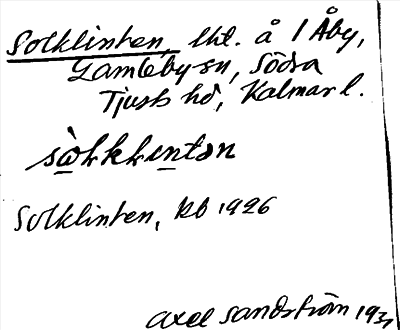 Solklinten, lht. å 1 Åby,
Gamleby sn, Södra
Tjusts hd, Kalmar l.
sὼlklıntən
Solklinten, RB 1926
Axel Sandström 193